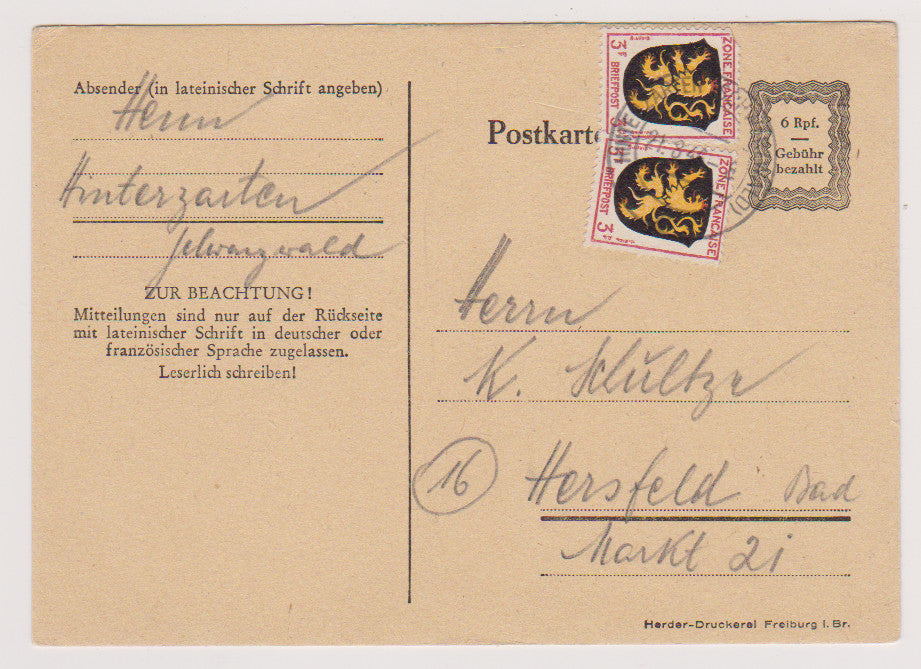 Absender (in lateinischer Schrift angeben)
Henn
Hinterzarten
Schwarzwald
ZUR BEACHTUNG!
Mitteilungen sind nur auf der Rückseite
mit lateinischer Schrift in deutscher oder
französischer Sprache zugelassen.
Leserlich schreiben!
Postkarte
ZONE FRANÇAISE
3 PF
BRIEFPOST
3
ZONE FRANÇAISE
3 PF
BRIEFPOST
3
6 Rpf.
Gebühr
bezahlt
Herrn
K. Schultze
16
Hersfeld Bad
Markt 21
Herder-Druckerei Freiburg i. Br.